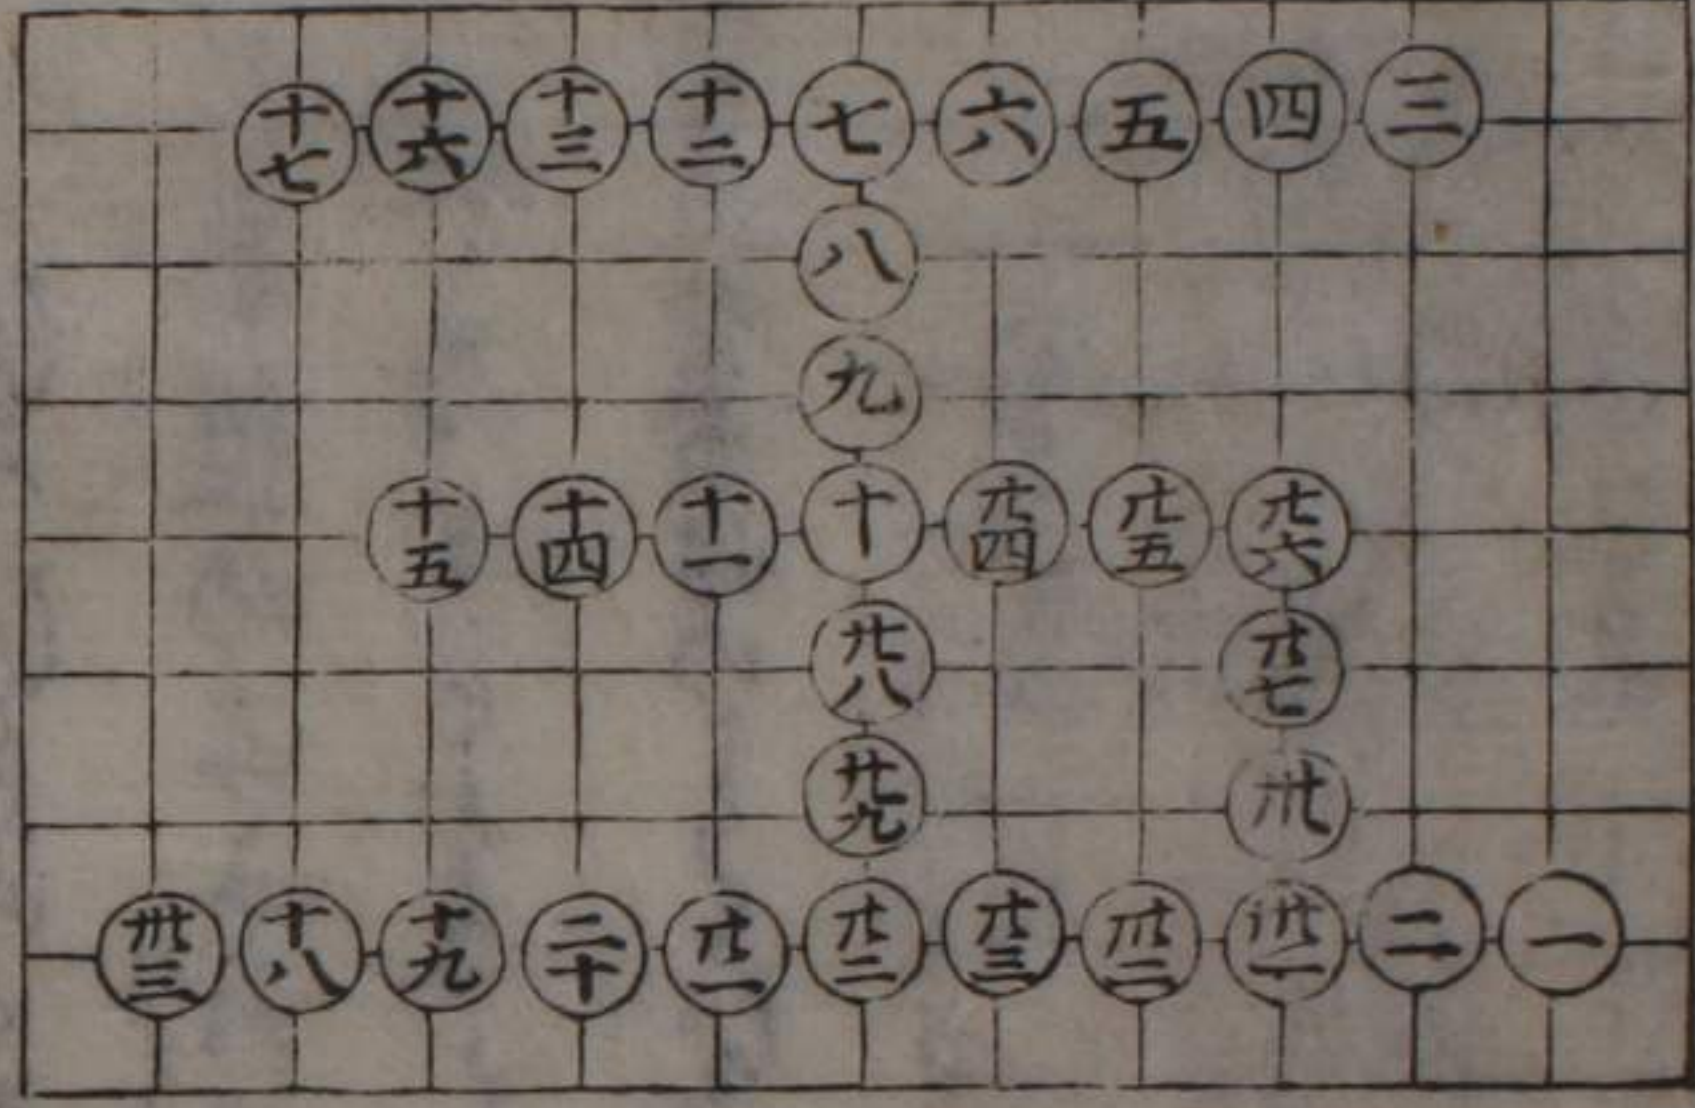 十七 十六 十三 十二 七 六 五 四 三
八
九
十五 十四 十一 十 廿四 廿五 廿六
廿八 廿七
廿九 卅
卅三 十八 十九 二十 廿一 廿二 廿三 卅二 卅一 二 一